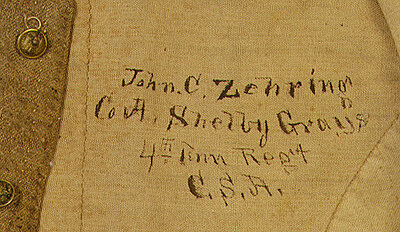 John. C. Zehring
Co A. Shelby Grays
4th Tenn Regt
C. S. A.